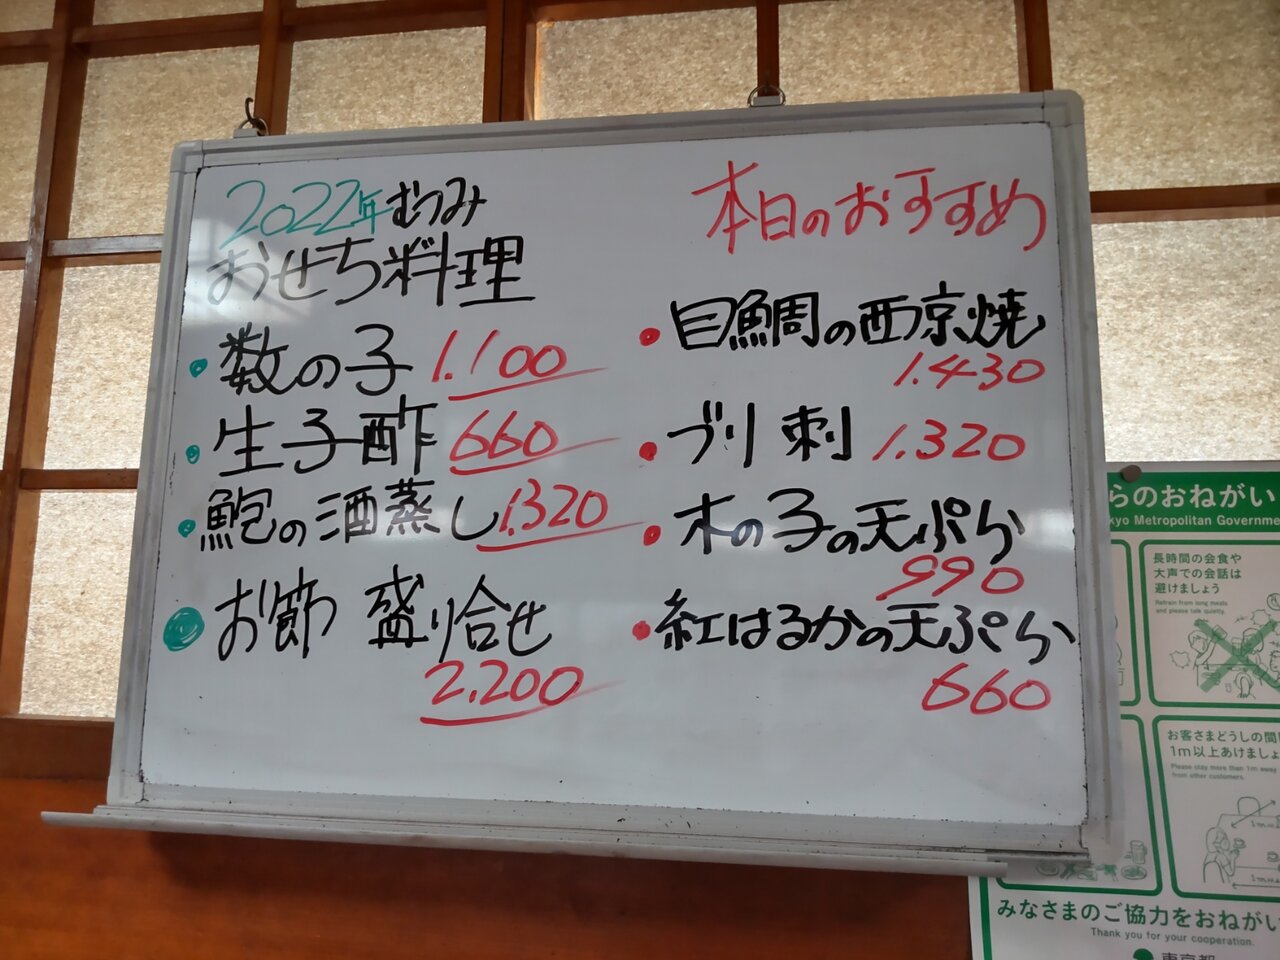 2022年 むつみ
おせち料理
・数の子 1.100
・生子酢 660
・鮑の酒蒸し 1.320
・お節 盛り合せ
2.200
本日のおすすめ
・目鯛の西京焼
1.430
・ブリ刺 1.320
・木の子の天ぷら
990
・紅はるかの天ぷら
660
らのおねがい
kyo Metropolitan Governme
長時間の会食や
大声での会話は
避けましょう
Refrain from long meals
and please talk quietly.
お客さまどうしの間
1m以上あけましょ
Please stay more than 1m away
from other customers.
みなさまのご協力をおねがい
Thank you for your cooperation.
東京都